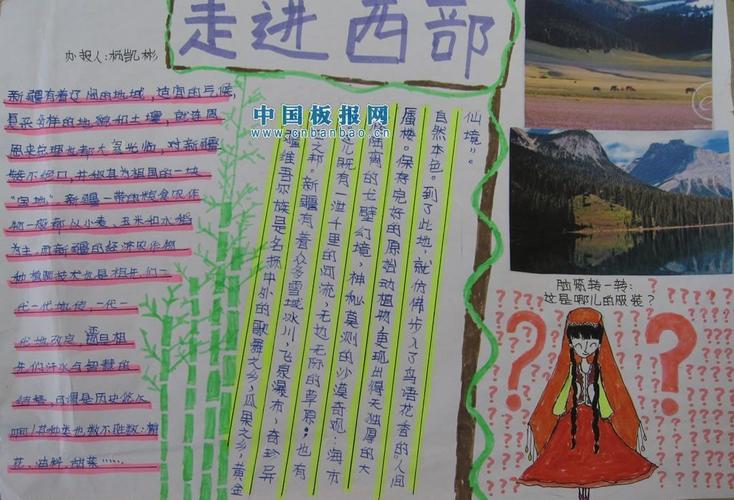 走进西部
办报人:杨凯彬
中国板报网
www.cnbanbao.cn
新疆有着辽阔的地域,适宜的气候,
复杂多样的地貌和土壤,就连周
恩来总理也都大驾光临,对新疆
赞不绝口,并称其为祖国的一块
“宝地”。新疆一带的粮食农作
物一般都以小麦、玉米和水稻
为主,而新疆的经济农作物
种植技术也是祖先们一
代一代地传,一代一
代地改良,
先们汗水与智慧的
结晶,
啊!其种类也数不胜数:棉
花、油料、甜菜……
疆维吾尔族是名扬中外的歌舞之乡,瓜果之乡,黄金
之邦。新疆有着众多雪域冰川,飞泉瀑布,奇珍异
既有一泄千里的河流,无边无际的草原;也有
的戈壁幻境,神秘莫测的沙漠奇观;海市
蜃楼。保存完好的原始动植物,更现出得天独厚的大
自然本色。到了此地,就仿佛步入了鸟语花香的“人间
仙境”。
脑筋转一转:
这是哪儿的服装?